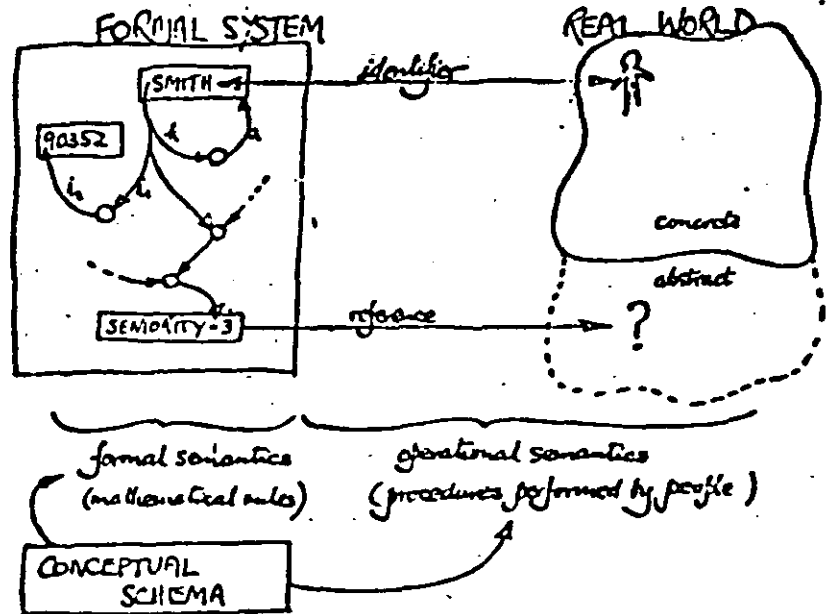 FORMAL SYSTEM
REAL WORLD
SMITH
identifier
90352
k
a
i₂
i₁
concrete
abstract
SENIORITY-3
reference
?
formal semantics
(mathematical rules)
operational semantics
(procedures performed by people)
CONCEPTUAL
SCHEMA